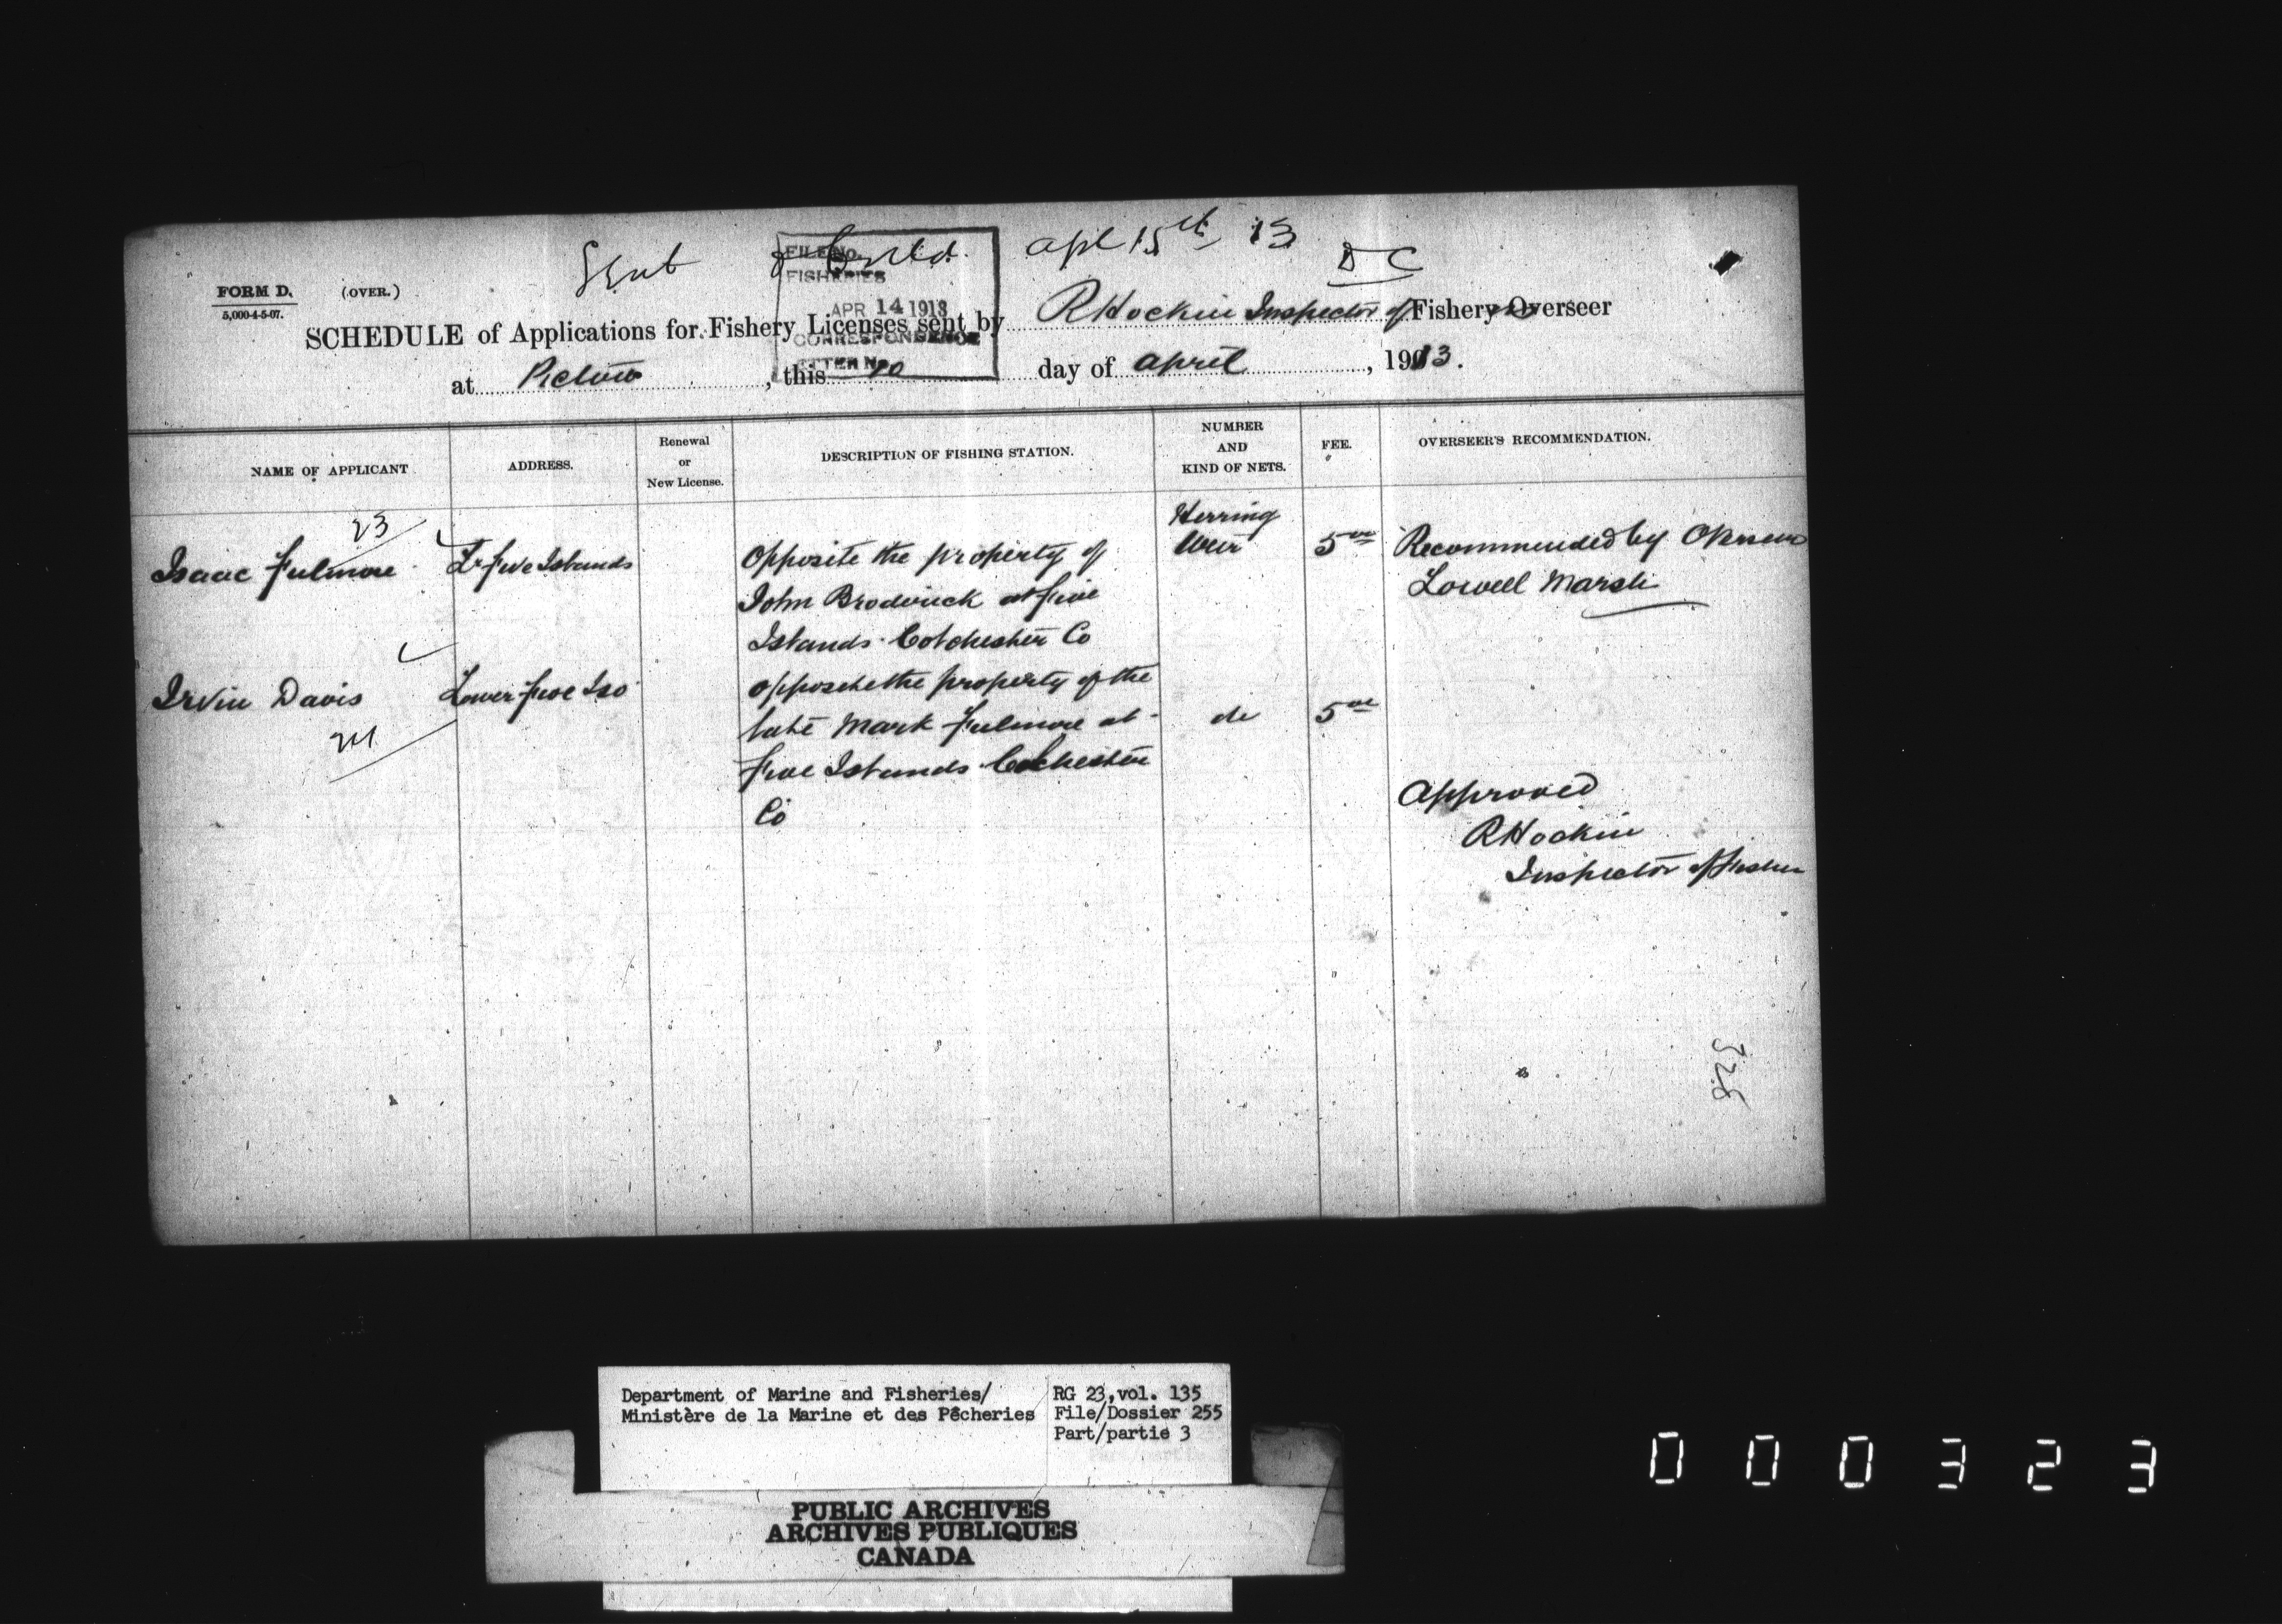 Sent apl 15th 13
D C
FILE No.
FISHERIES
APR 14 1913
CORRESPONDENCE
LETTER No.
FORM D. (OVER.)
5,000-4-5-07.
SCHEDULE of Applications for Fishery Licenses sent by R Hockin Inspector of Fishery Overseer
at Pictou, this 10 day of april, 1913.
NAME OF APPLICANT
ADDRESS.
Renewal
or
New License.
DESCRIPTION OF FISHING STATION.
NUMBER
AND
KIND OF NETS.
FEE.
OVERSEER'S RECOMMENDATION.
23
Isaac Fulmore
Lr Five Islands
Opposite the property of
John Broderick at Five
Islands Colchester Co
Herring
Weir
5 00
Recommended by
Lowell Marsh
Irvin Davis
24
Lower Five Isd
opposite the property of the
late Mark Fulmore at
Five Islands Colchester
Co
do
5 00
Approved
R Hockin
Inspector of
328
Department of Marine and Fisheries/
Ministère de la Marine et des Pêcheries
RG 23, vol. 135
File/Dossier 255
Part/partie 3
PUBLIC ARCHIVES
ARCHIVES PUBLIQUES
CANADA
000323